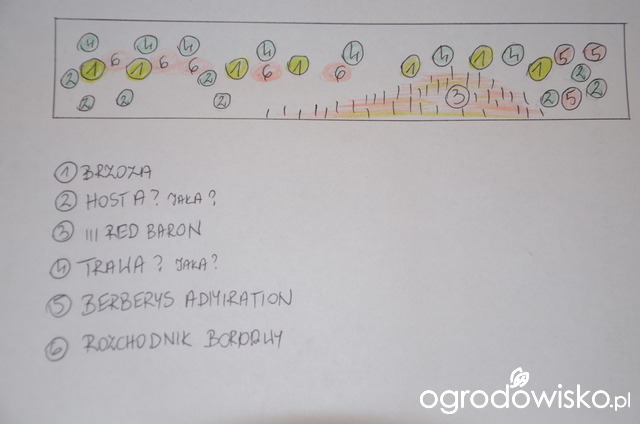 4 4 4 4 4 4 1 4 5 5
2 1 6 1 6 6 2 1 6 1 6 1 1 2
2 2 2 3 2 5 2
1 BRZOZA
2 HOSTA? JAKA?
3 III RED BARON
4 TRAWA? JAKA?
5 BERBERYS ADMIRATION
6 ROZCHODNIK BORDOWY
ogrodowisko.pl